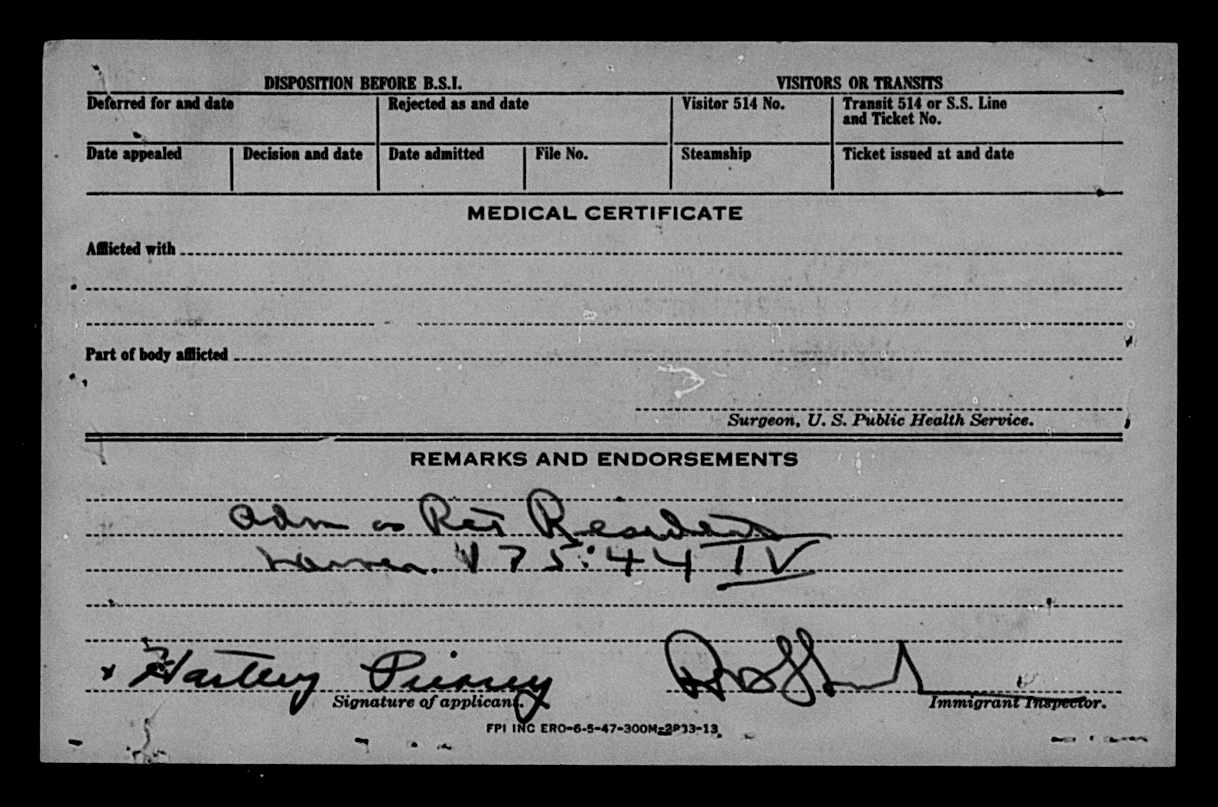 DISPOSITION BEFORE B.S.I. VISITORS OR TRANSITS
Deferred for and date Rejected as and date Visitor 514 No. Transit 514 or S.S. Line and Ticket No.
Date appealed Decision and date Date admitted File No. Steamship Ticket issued at and date
MEDICAL CERTIFICATE
Afflicted with
Part of body afflicted
Surgeon, U. S. Public Health Service.
REMARKS AND ENDORSEMENTS
Adm as Ret Resident
175:44 IV
x Hartley
Signature of applicant. Immigrant Inspector.
FPI INC ERO-6-5-47-300M-2P33-13